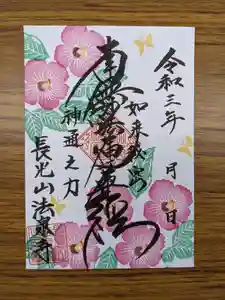 令和三年 月 日
如来秘密
南無妙法蓮華経
神通之力
長光山法泉寺